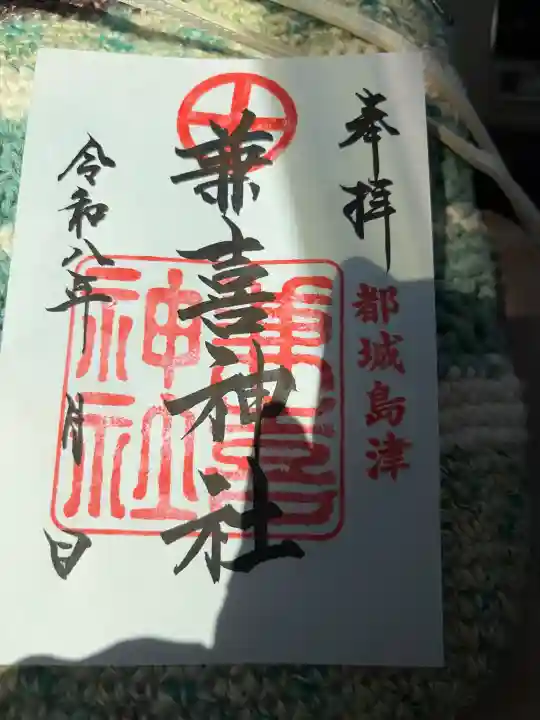 奉拝
都城島津
兼喜神社
兼喜神社
令和八年 月 日